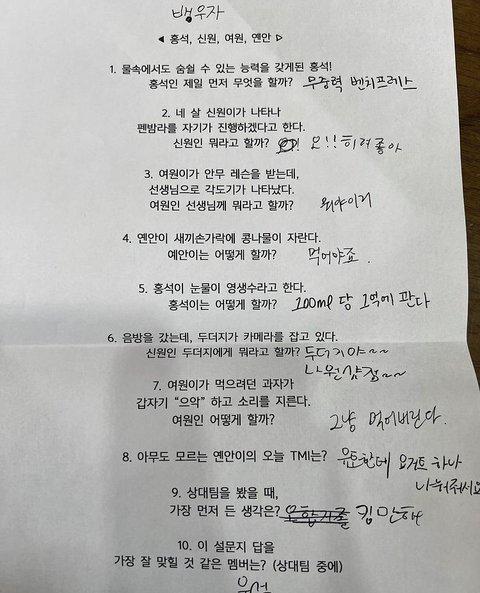 뱅우자
◀ 홍석, 신원, 여원, 옌안 ▷
1. 물속에서도 숨쉴 수 있는 능력을 갖게된 홍석!
홍석인 제일 먼저 무엇을 할까? 무중력 벤치프레스
2. 네 살 신원이가 나타나
펜밤라를 자기가 진행하겠다고 한다.
신원인 뭐라고 할까? 오!! 히려좋아
3. 여원이가 안무 레슨을 받는데,
선생님으로 각도기가 나타났다.
여원인 선생님께 뭐라고 할까? 뭐야이거
4. 옌안이 새끼손가락에 콩나물이 자란다.
예안이는 어떻게 할까? 먹어야죠.
5. 홍석이 눈물이 영생수라고 한다.
홍석이는 어떻게 할까? 100ml 당 1억에 판다
6. 음방을 갔는데, 두더지가 카메라를 잡고 있다.
신원인 두더지에게 뭐라고 할까? 두더지야~~
나 원샷 잡~~
7. 여원이가 먹으려던 과자가
갑자기 "으악" 하고 소리를 지른다.
여원인 어떻게 할까? 그냥 먹어버린다.
8. 아무도 모르는 옌안이의 오늘 TMI는? 요거트 하나
나눠줘서요
9. 상대팀을 봤을 때,
가장 먼저 든 생각은? 오합지졸 킹만해
10. 이 설문지 답을
가장 잘 맞힐 것 같은 멤버는? (상대팀 중에)
우석